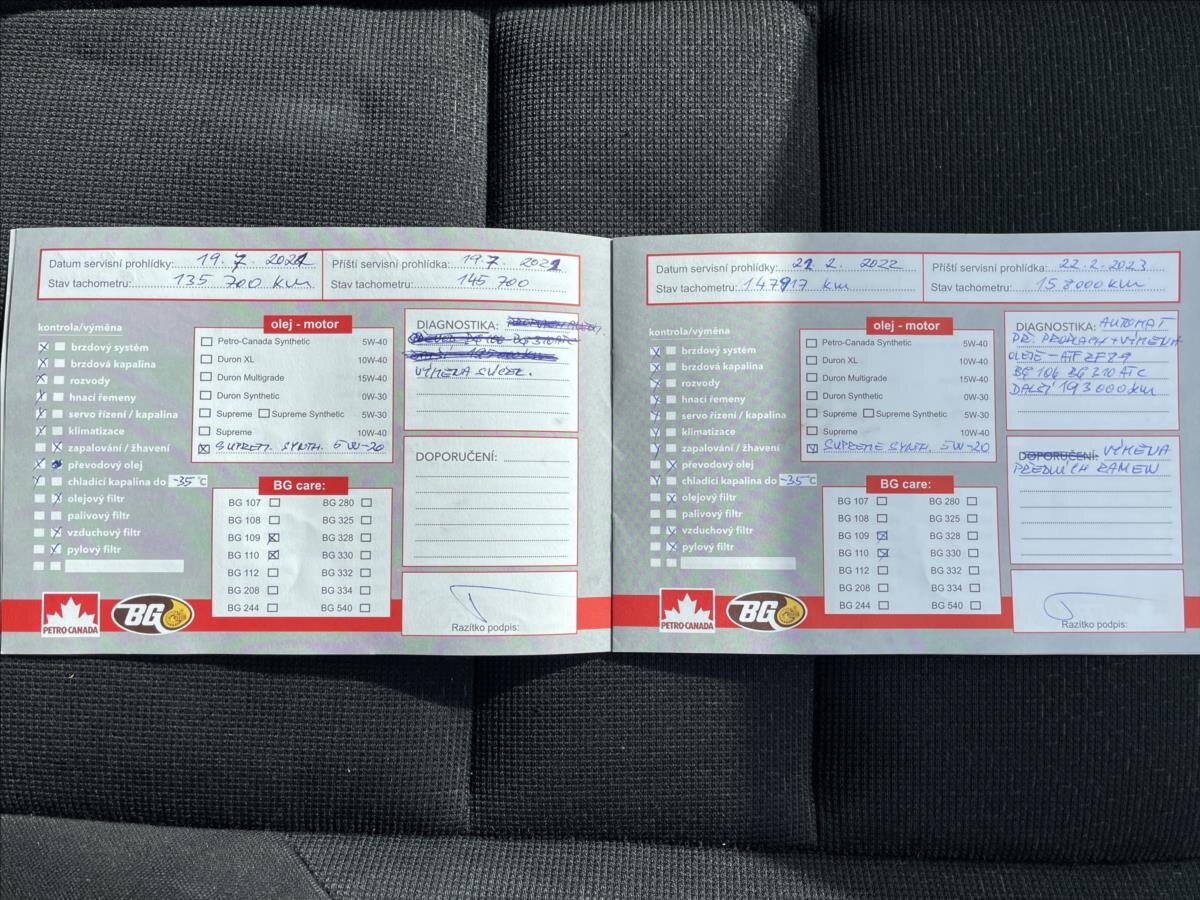 Datum servisní prohlídky: 19. 7. 2021
Příští servisní prohlídka: 19.7. 2021
Stav tachometru: 135 700 km
145 700
kontrola/výměna
brzdový systém
brzdová kapalina
rozvody
hnací řemeny
servo řízení / kapalina
klimatizace
zapalování / žhavení
převodový olej
chladící kapalina do -35 °C
olejový filtr
palivový filtr
vzduchový filtr
pylový filtr
olej - motor
Petro-Canada Synthetic 5W-40
Duron XL 10W-40
Duron Multigrade 15W-40
Duron Synthetic 0W-30
Supreme Supreme Synthetic 5W-30
Supreme 10W-40
SUPREM. SYNTH. 5W-20
BG care:
BG 107 BG 280
BG 108 BG 325
BG 109 BG 328
BG 110 BG 330
BG 112 BG 332
BG 208 BG 334
BG 244 BG 540
DIAGNOSTIKA:
VÝMĚNA SVÍČEK.
DOPORUČENÍ:
Razítko podpis:
PETRO-CANADA
BG
Datum servisní prohlídky: 22. 2. 2022
Příští servisní prohlídka: 22.2.2023
Stav tachometru: 147917 km
Stav tachometru: 158000 km
kontrola/výměna
brzdový systém
brzdová kapalina
rozvody
hnací řemeny
servo řízení / kapalina
klimatizace
zapalování / žhavení
převodový olej
chladící kapalina do -35 °C
olejový filtr
palivový filtr
vzduchový filtr
pylový filtr
olej - motor
Petro-Canada Synthetic 5W-40
Duron XL 10W-40
Duron Multigrade 15W-40
Duron Synthetic 0W-30
Supreme Supreme Synthetic 5W-30
Supreme 10W-40
SUPREME SYNTH. 5W-20
BG care:
BG 107 BG 280
BG 108 BG 325
BG 109 BG 328
BG 110 BG 330
BG 112 BG 332
BG 208 BG 334
BG 244 BG 540
DIAGNOSTIKA: AUTOMAT
PŘ. PROPLACH + VÝMĚNA
OLEJE - ATF ZF
BG 106 BG 310 ATC
DALŠÍ 193000 km
DOPORUČENÍ: VÝMĚNA
PŘEDNÍCH RAMEN
Razítko podpis:
PETRO-CANADA
BG